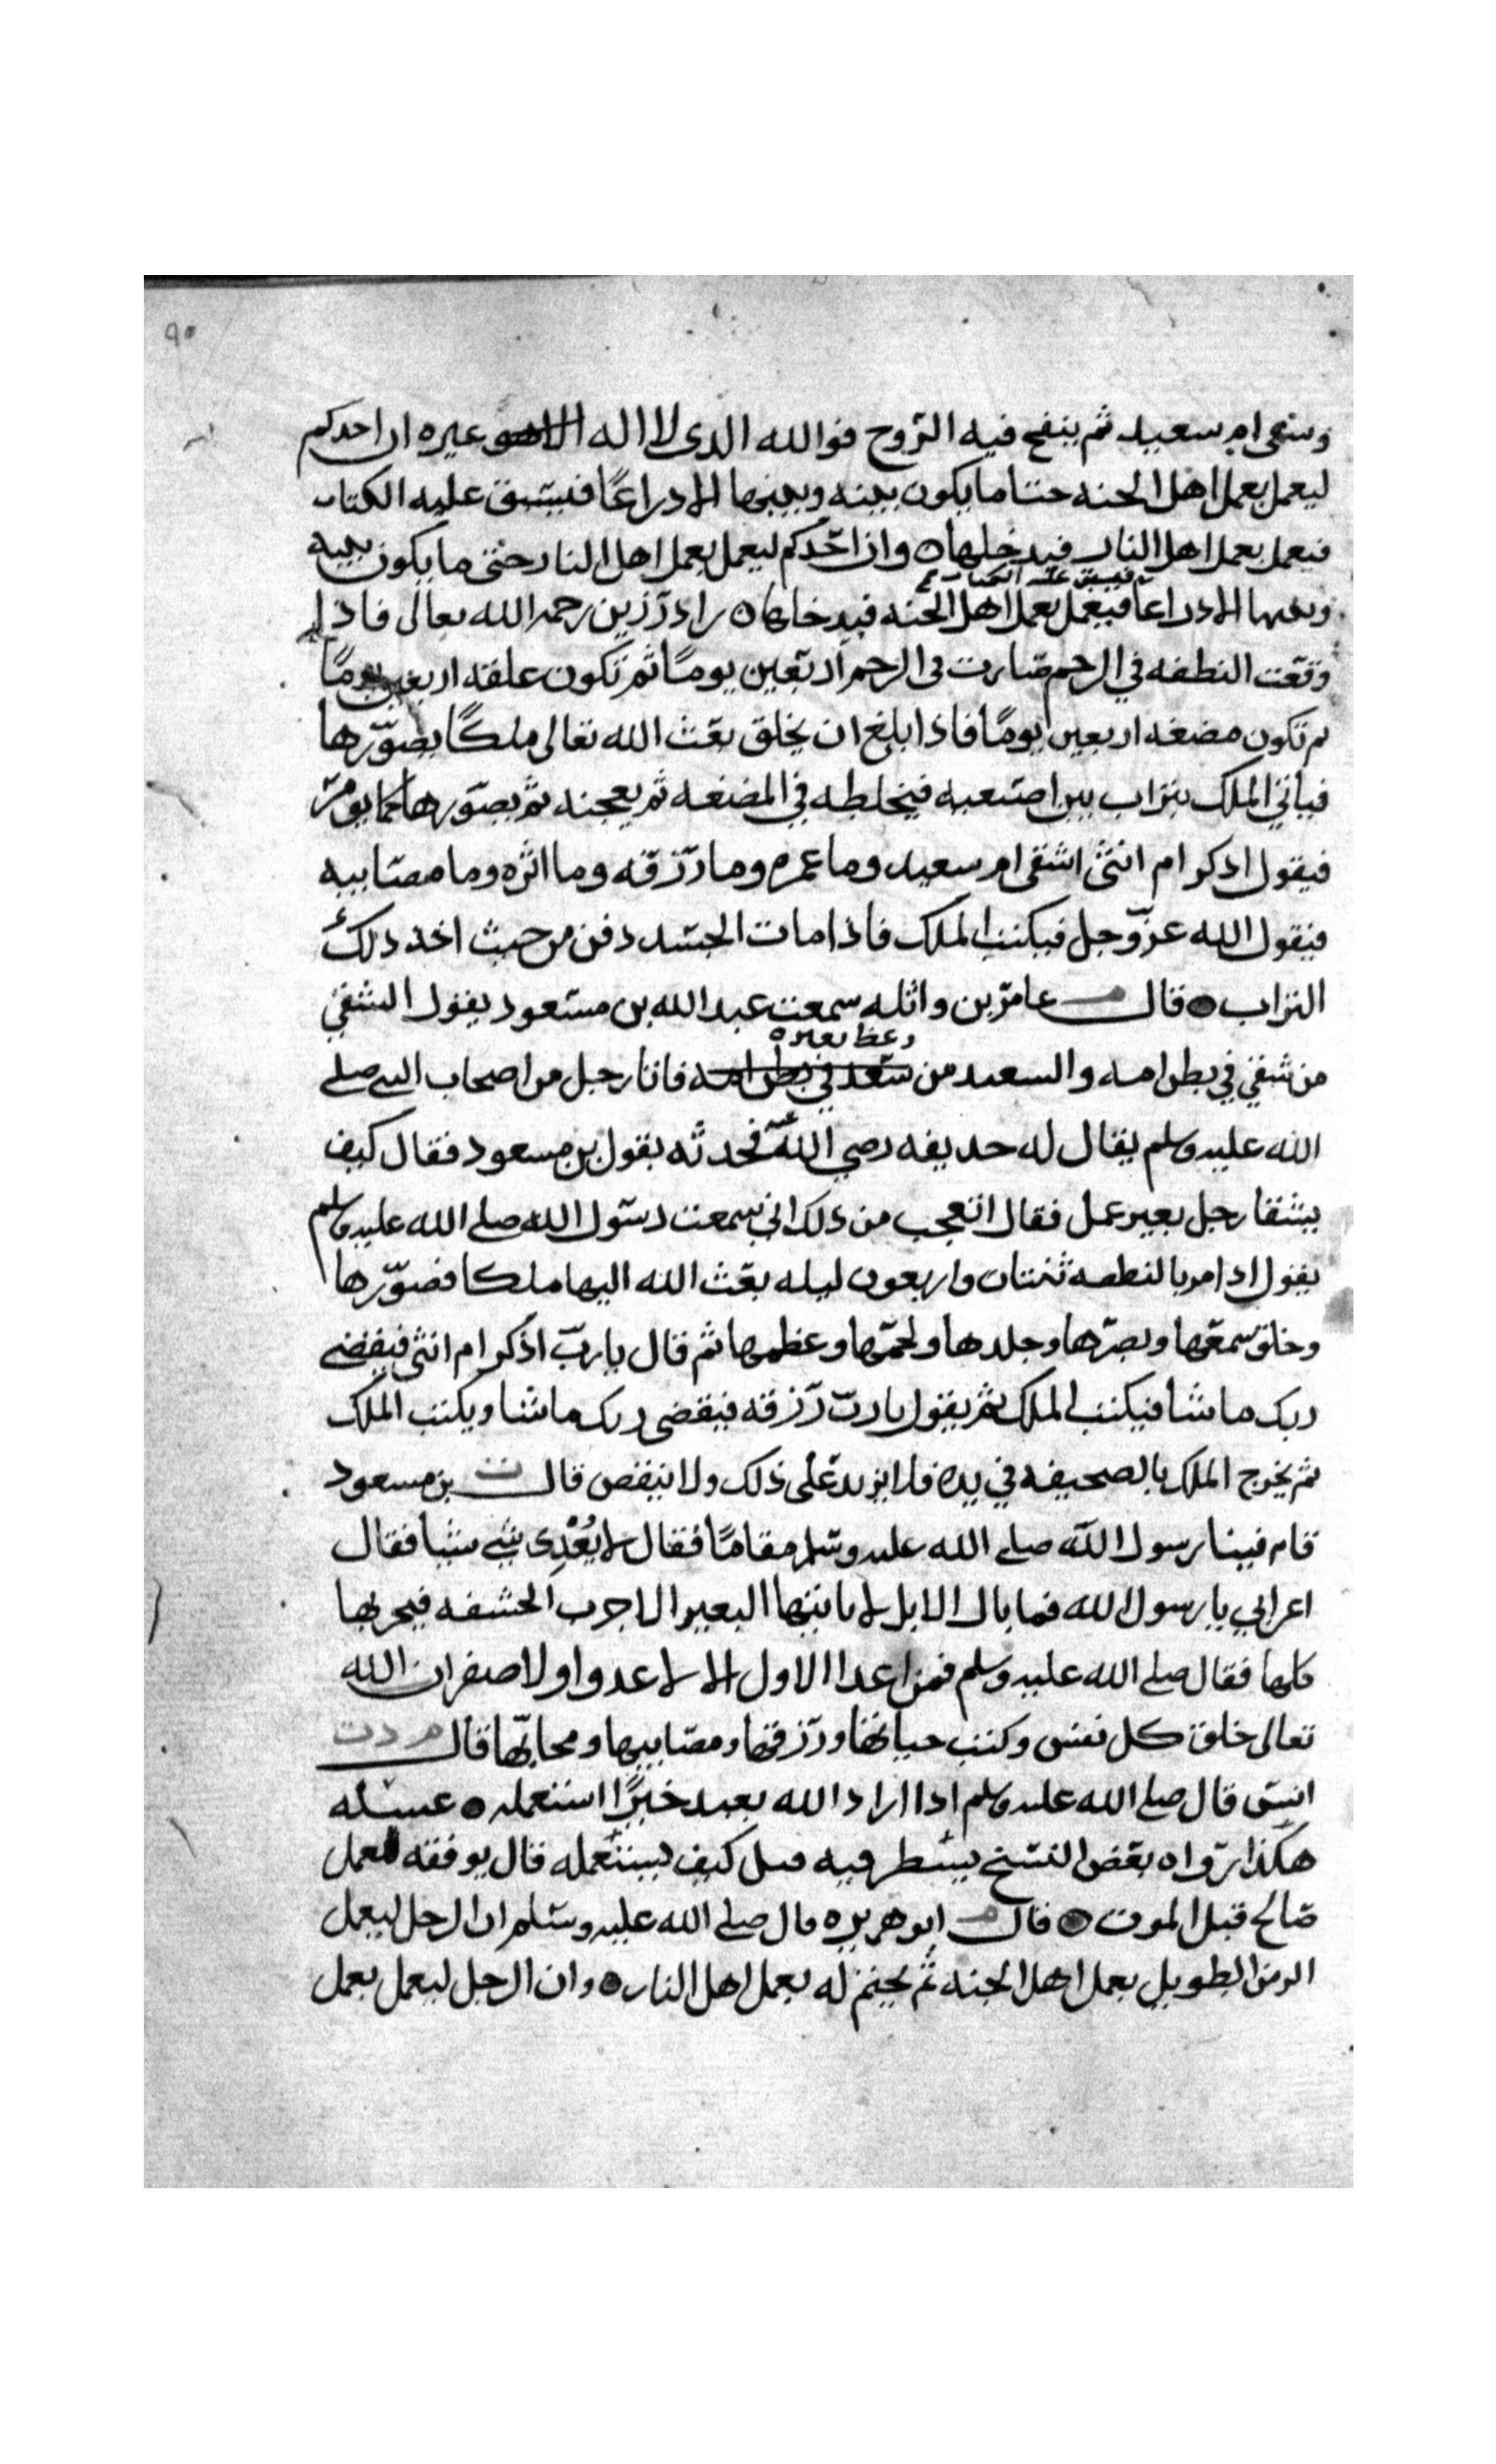 ٩٥
وشقى ام سعيد ثم ينفخ فيه الرّوح فوالله الدى لا اله الا هو غيره ان احدكم
ليعمل بعمل اهل الجنه حتا ما يكون بينه وبينها الا ذراعًا فيسبق عليه الكتاب
فيعمل بعمل اهل النار فيدخلها ٥ وان احدكم ليعمل بعمل اهل النار حتى ما يكون بينه
فيسبق عليه الكتاب
وبينها الا ذراعا فيعمل بعمل اهل الجنه فيدخلها ٥ زاد رزين رحمه الله تعالى فاذا
وقعت النطفه في الرحم صارت فى الرحم اربعين يومًا ثم تكون علقه اربعين يومًا
ثم تكون مضغه اربعين يومًا فاذا بلغ ان يخلق بعث الله تعالى ملكًا يصوّرها
فياتي الملك بتراب بين اصبعيه فيخلطه في المضغه ثم يعجنه ثم يصوّرها كما يومر
فيقول اذكر ام انثى اشقى ام سعيد وما عمره وما رزقه وما اثره وما مصايبه
فيقول الله عزّ وجل فيكتب الملك فاذا مات الجسد دفن من حيث اخذ ذلك
التراب ٥ قال م عامر بن واثله سمعت عبد الله بن مسعود يقول الشقي
وعظ بغيره
من شقي في بطن امه والسعيد من سعد في بطن امه فاتا رجل من اصحاب النبى صلى
الله عليه وسلم يقال له حذيفه رضي الله عنه فحدثه بقول بن مسعود فقال كيف
يشقا رجل بغير عمل فقال اتعجب من ذلك اني سمعت رسول الله صلى الله عليه وسلم
يقول اذا مر بالنطفه ثنتان واربعون ليله بعث الله اليها ملكا فصوّرها
وخلق سمعها وبصرها وجلدها ولحمها وعظمها ثم قال يا ربّ اذكر ام انثى فيقضى
ربك ما شا فيكتب الملك ثم يقول يا رب رزقه فيقضى ربك ما شا ويكتب الملك
ثم يخرج الملك بالصحيفه في يده فلا يزيد على ذلك ولا ينقص قال ت بن مسعود
قام فينا رسول الله صلى الله عليه وسلم مقامًا فقال لا يُعْدِى شى شيا فقال
اعرابي يا رسول الله فما بال الابل ياتيها البعير الاجرب الحشفه فيجربها
كلها فقال صلى الله عليه وسلم فمن اعدا الاول لا عدوا ولا صفر ان الله
تعالى خلق كل نفس وكتب حياتها ورزقها ومصايبها ومحابّها قال م د ت
انس قال صلى الله عليه وسلم اذا اراد الله بعبد خيرًا استعمله ٥ عسله
هكذا رواه بعض النسخ ينظر فيه قيل كيف يستعمله قال يوفقه لعمل
صالح قبل الموت ٥ قال م ابو هريره قال صلى الله عليه وسلم ان الرجل ليعمل
الزمن الطويل بعمل اهل الجنه ثم يختم له بعمل اهل النار ٥ وان الرجل ليعمل بعمل